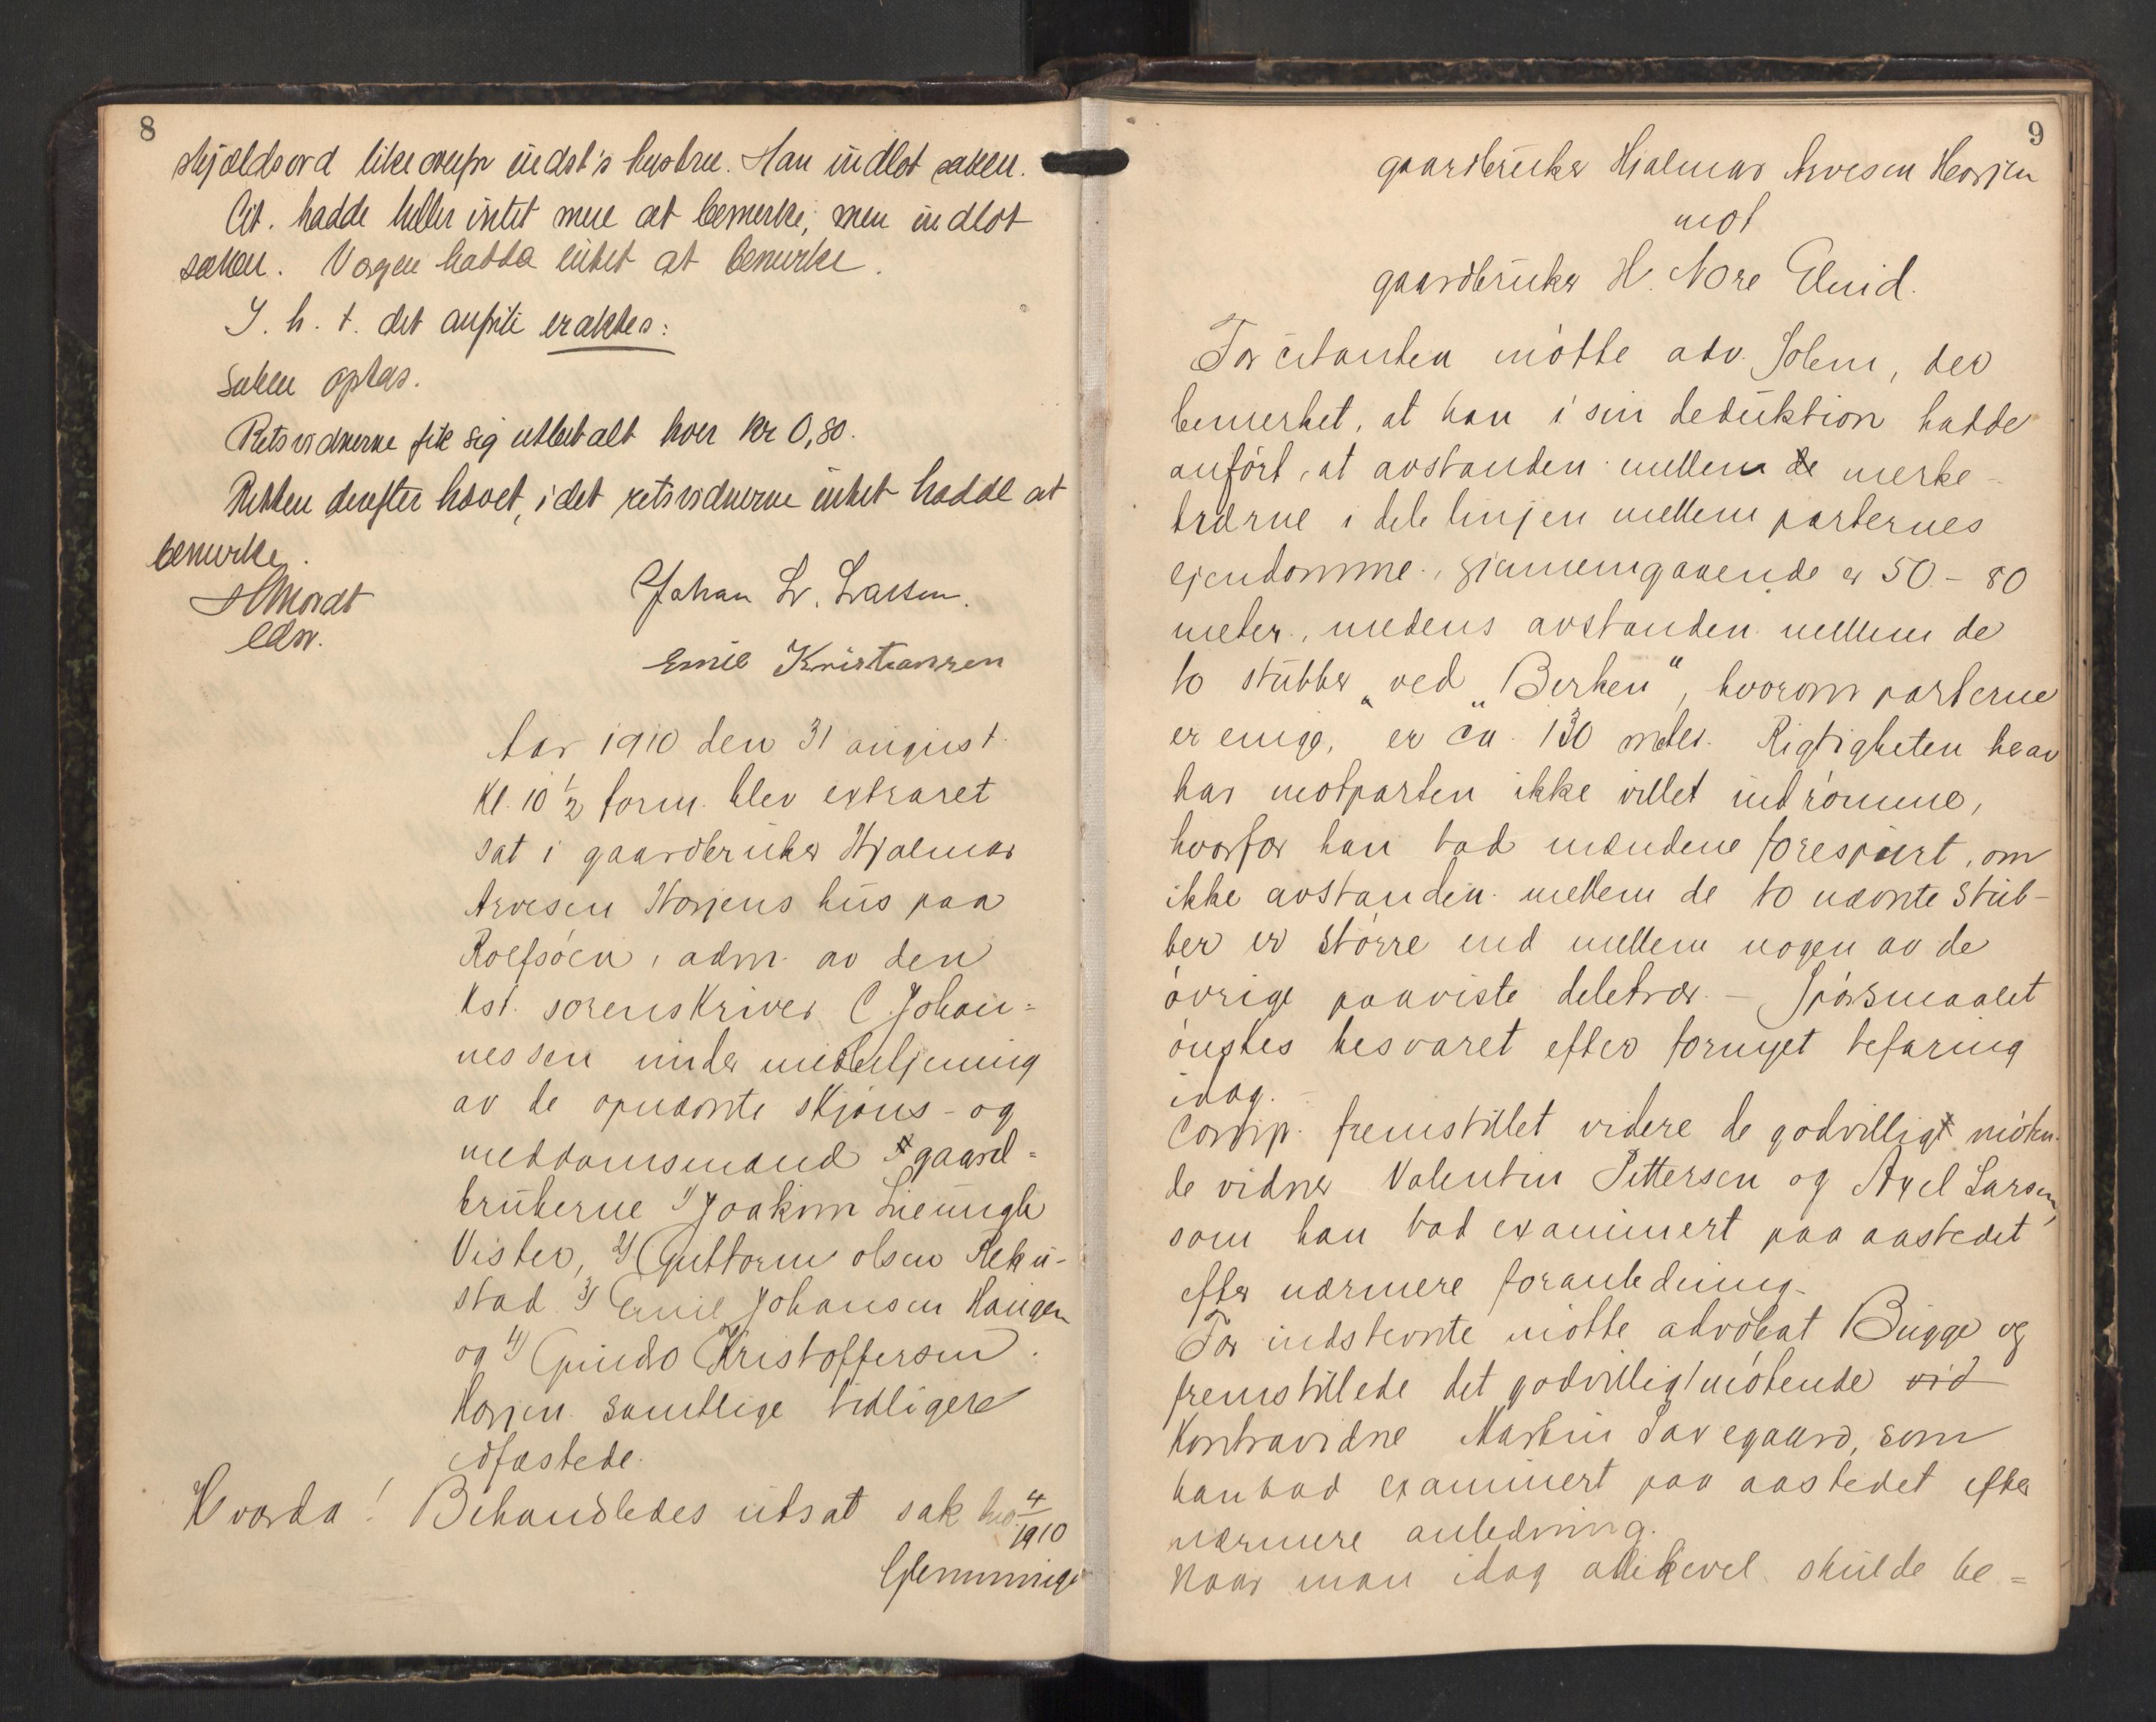 8
skjældsord likeoverfor indst's hustru. Han indlot saken.
Cit. hadde heller intet mere at bemerke, men indlot
saken. Vorgen hadde intet at bemerke.
I. h. t. det anførte eraktes:
Saken optas.
Retsvidnerne fik sig utbetalt hver kr 0,80.
Retten derefter hævet, idet retsvidnerne intet hadde at
bemerke.
Johan L. Larsen.
edsv.
Emil Kristiansen
Aar 1910 den 31 august
kl. 10 1/2 form. blev extraret
sat i gaardbruker Hjalmar
Arvesen Horjens hus paa
Rolfsöen, adm. av den
kst. sorenskriver C. Johan=
nessen under medbetjening
av de opnævnte skjöns- og
meddomsmænd gaard=
brukerne 1) Joakim Lieungh
Vister, 2) Guttorm olsen Reku-
stad 3) Emil Johansen Haugen
og 4) Guido Kristoffersen
Horjen samtlige tidligere
edfæstede.
Hvorda! Behandledes utsat sak no 4/1910
Glemminge
9
gaardbruker Hjalmar Arvesen Horjen
mot
gaardbruker H. Nore Elnid.
For citanten mötte adv. Solem, der
bemerket, at han i sin deduktion hadde
anfört, at avstanden mellem de merke-
trærne i delelinjen mellem parternes
ejendomme, gjennemgaaende er 50 - 80
meter, medens avstanden mellem de
to stubber "ved "Berken", hvorom parterne
er enige, er ca. 130 meter. Rigtigheten herav
har motparten ikke villet indrömme,
hvorfor han bad mændene forespurt, om
ikke avstanden mellem de to nævnte stub-
ber er större end mellem nogen av de
övrige paaviste deletrær. - Spörsmaalet
önskes besvaret efter fornyet befaring
idag. -
Comp. fremstillet videre de godvilligt möten-
de vidner Valentin Pettersen og Axel Larsen,
som han bad examinert paa aastedet
efter nærmere foranledning.
For indstevnte mötte advokat Bugge og
fremstillede det godvilligt mötende vid
Kontravidne Martin Navegaard, som
han bad examinert paa aastedet efter
nærmere anledning.
Naar man idag allikevel skulde be=